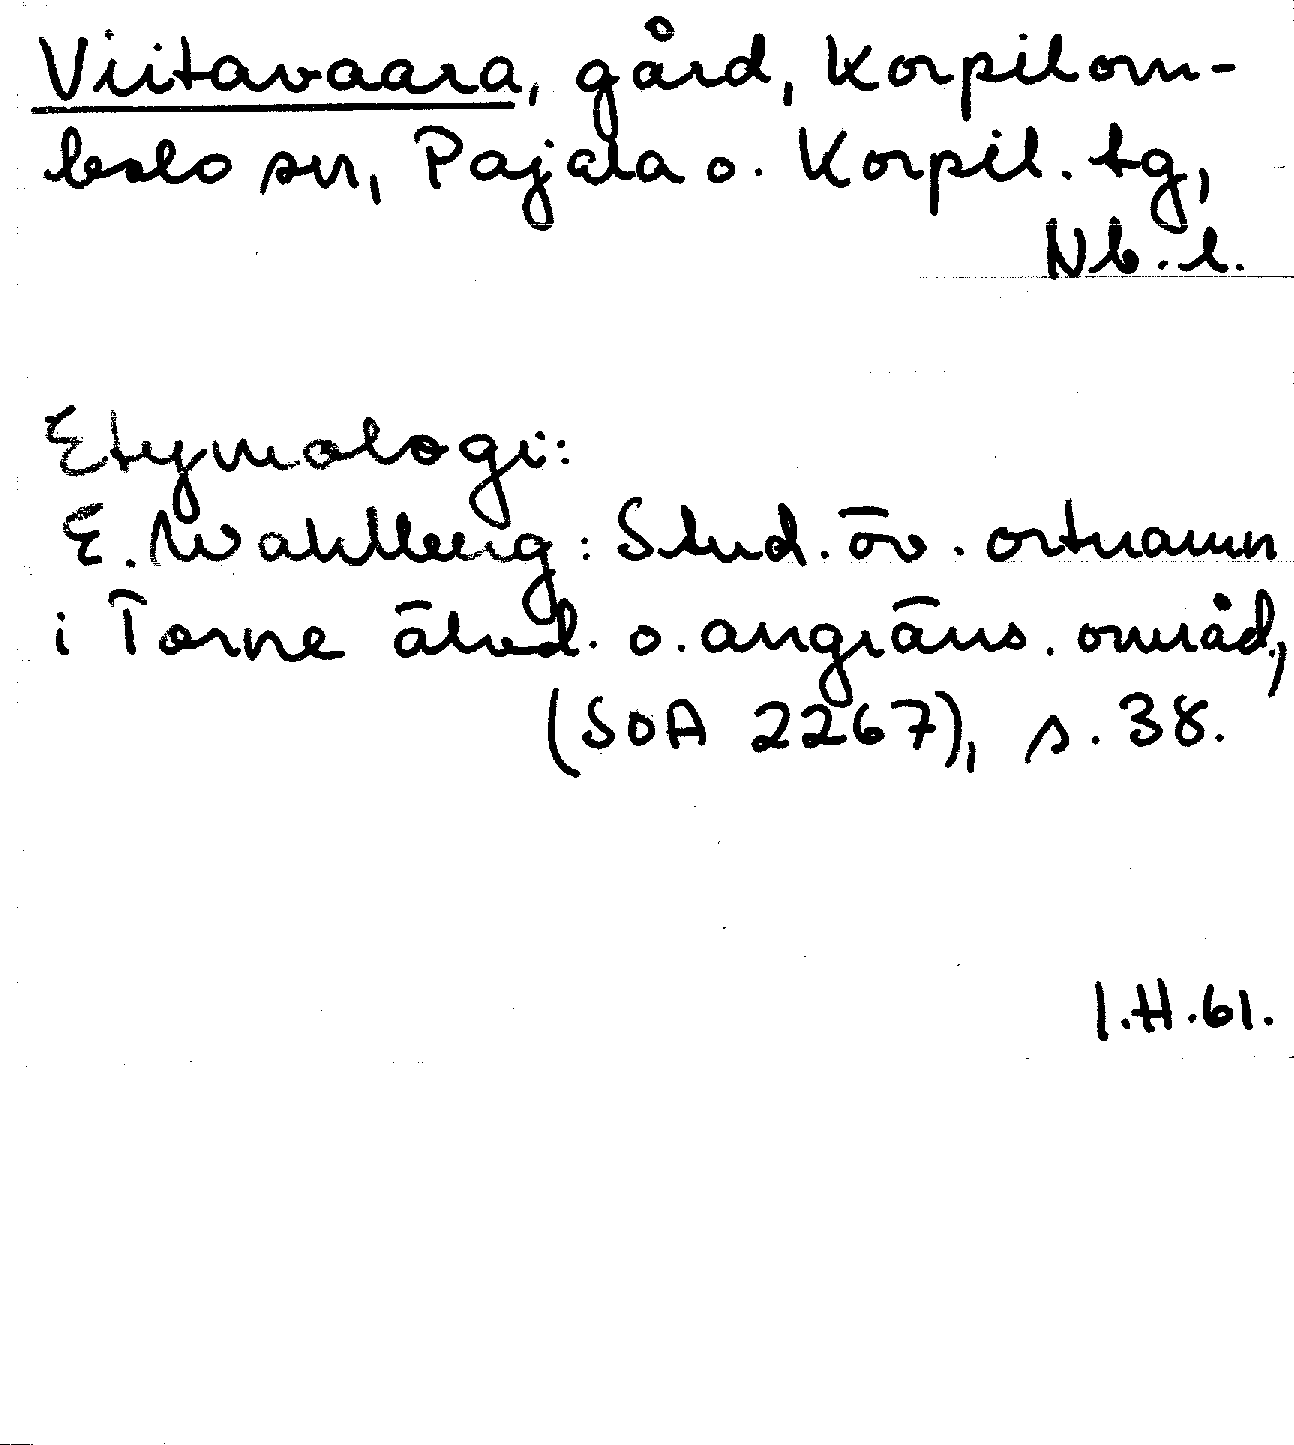 Viitavaara, gård, Korpilom-
bolo sn, Pajala o. Korpil. tg,
Nb. l.
Etymologi:
E. Wahlberg: Stud. öv. ortnamn
i Torne älvd. o. angräns. områd,
(SOA 2267), s. 38.
I.H.61.